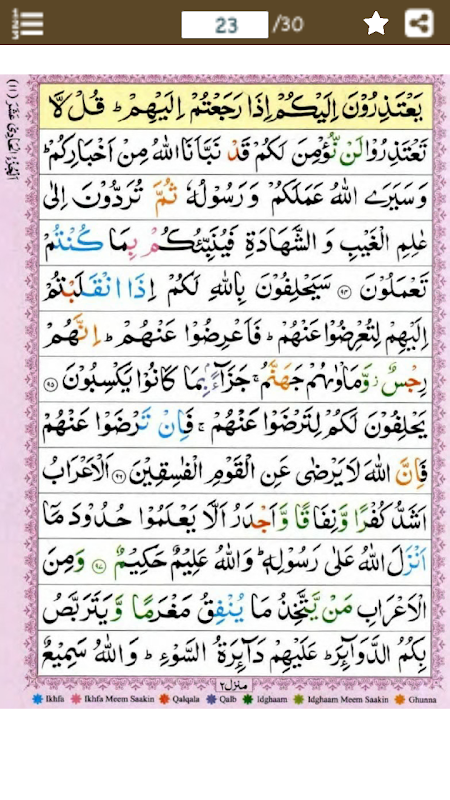 23 /30
اَلْجُزْءُ الْحَادِیْ عَشَرَ (۱۱)
یَعْتَذِرُوْنَ اِلَیْكُمْ اِذَا رَجَعْتُمْ اِلَیْهِمْ ؕ قُلْ لَّا
تَعْتَذِرُوْا لَنْ نُّؤْمِنَ لَكُمْ قَدْ نَبَّاَنَا اللّٰهُ مِنْ اَخْبَارِكُمْ ؕ
وَ سَیَرَی اللّٰهُ عَمَلَكُمْ وَ رَسُوْلُهٗ ثُمَّ تُرَدُّوْنَ اِلٰی
عٰلِمِ الْغَیْبِ وَ الشَّهَادَةِ فَیُنَبِّئُكُمْ بِمَا كُنْتُمْ
تَعْمَلُوْنَ ۹۴ سَیَحْلِفُوْنَ بِاللّٰهِ لَكُمْ اِذَا انْقَلَبْتُمْ
اِلَیْهِمْ لِتُعْرِضُوْا عَنْهُمْ ؕ فَاَعْرِضُوْا عَنْهُمْ ؕ اِنَّهُمْ
رِجْسٌ ؗ وَّ مَاْوٰىهُمْ جَهَنَّمُ ۚ جَزَآءًۢ بِمَا كَانُوْا یَكْسِبُوْنَ ۹۵
یَحْلِفُوْنَ لَكُمْ لِتَرْضَوْا عَنْهُمْ ۚ فَاِنْ تَرْضَوْا عَنْهُمْ
فَاِنَّ اللّٰهَ لَا یَرْضٰی عَنِ الْقَوْمِ الْفٰسِقِیْنَ ۹۶ اَلْاَعْرَابُ
اَشَدُّ كُفْرًا وَّ نِفَاقًا وَّ اَجْدَرُ اَلَّا یَعْلَمُوْا حُدُوْدَ مَاۤ
اَنْزَلَ اللّٰهُ عَلٰی رَسُوْلِهٖ ؕ وَ اللّٰهُ عَلِیْمٌ حَكِیْمٌ ۹۷ وَ مِنَ
الْاَعْرَابِ مَنْ یَّتَّخِذُ مَا یُنْفِقُ مَغْرَمًا وَّ یَتَرَبَّصُ
بِكُمُ الدَّوَآئِرَ ؕ عَلَیْهِمْ دَآئِرَةُ السَّوْءِ ؕ وَ اللّٰهُ سَمِیْعٌ
منزل۲
Ikhfa Ikhfa Meem Saakin Qalqala Qalb Idghaam Idghaam Meem Saakin Ghunna